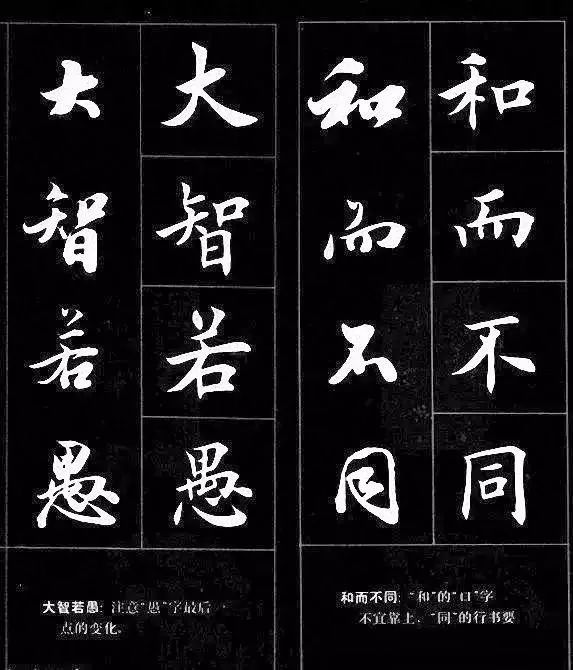 和而不同
和而不同
和而不同: “和”的“口”字
不宜靠上, “同”的行书要
大智若愚
大智若愚
大智若愚: 注意“愚”字最后一
点的变化。